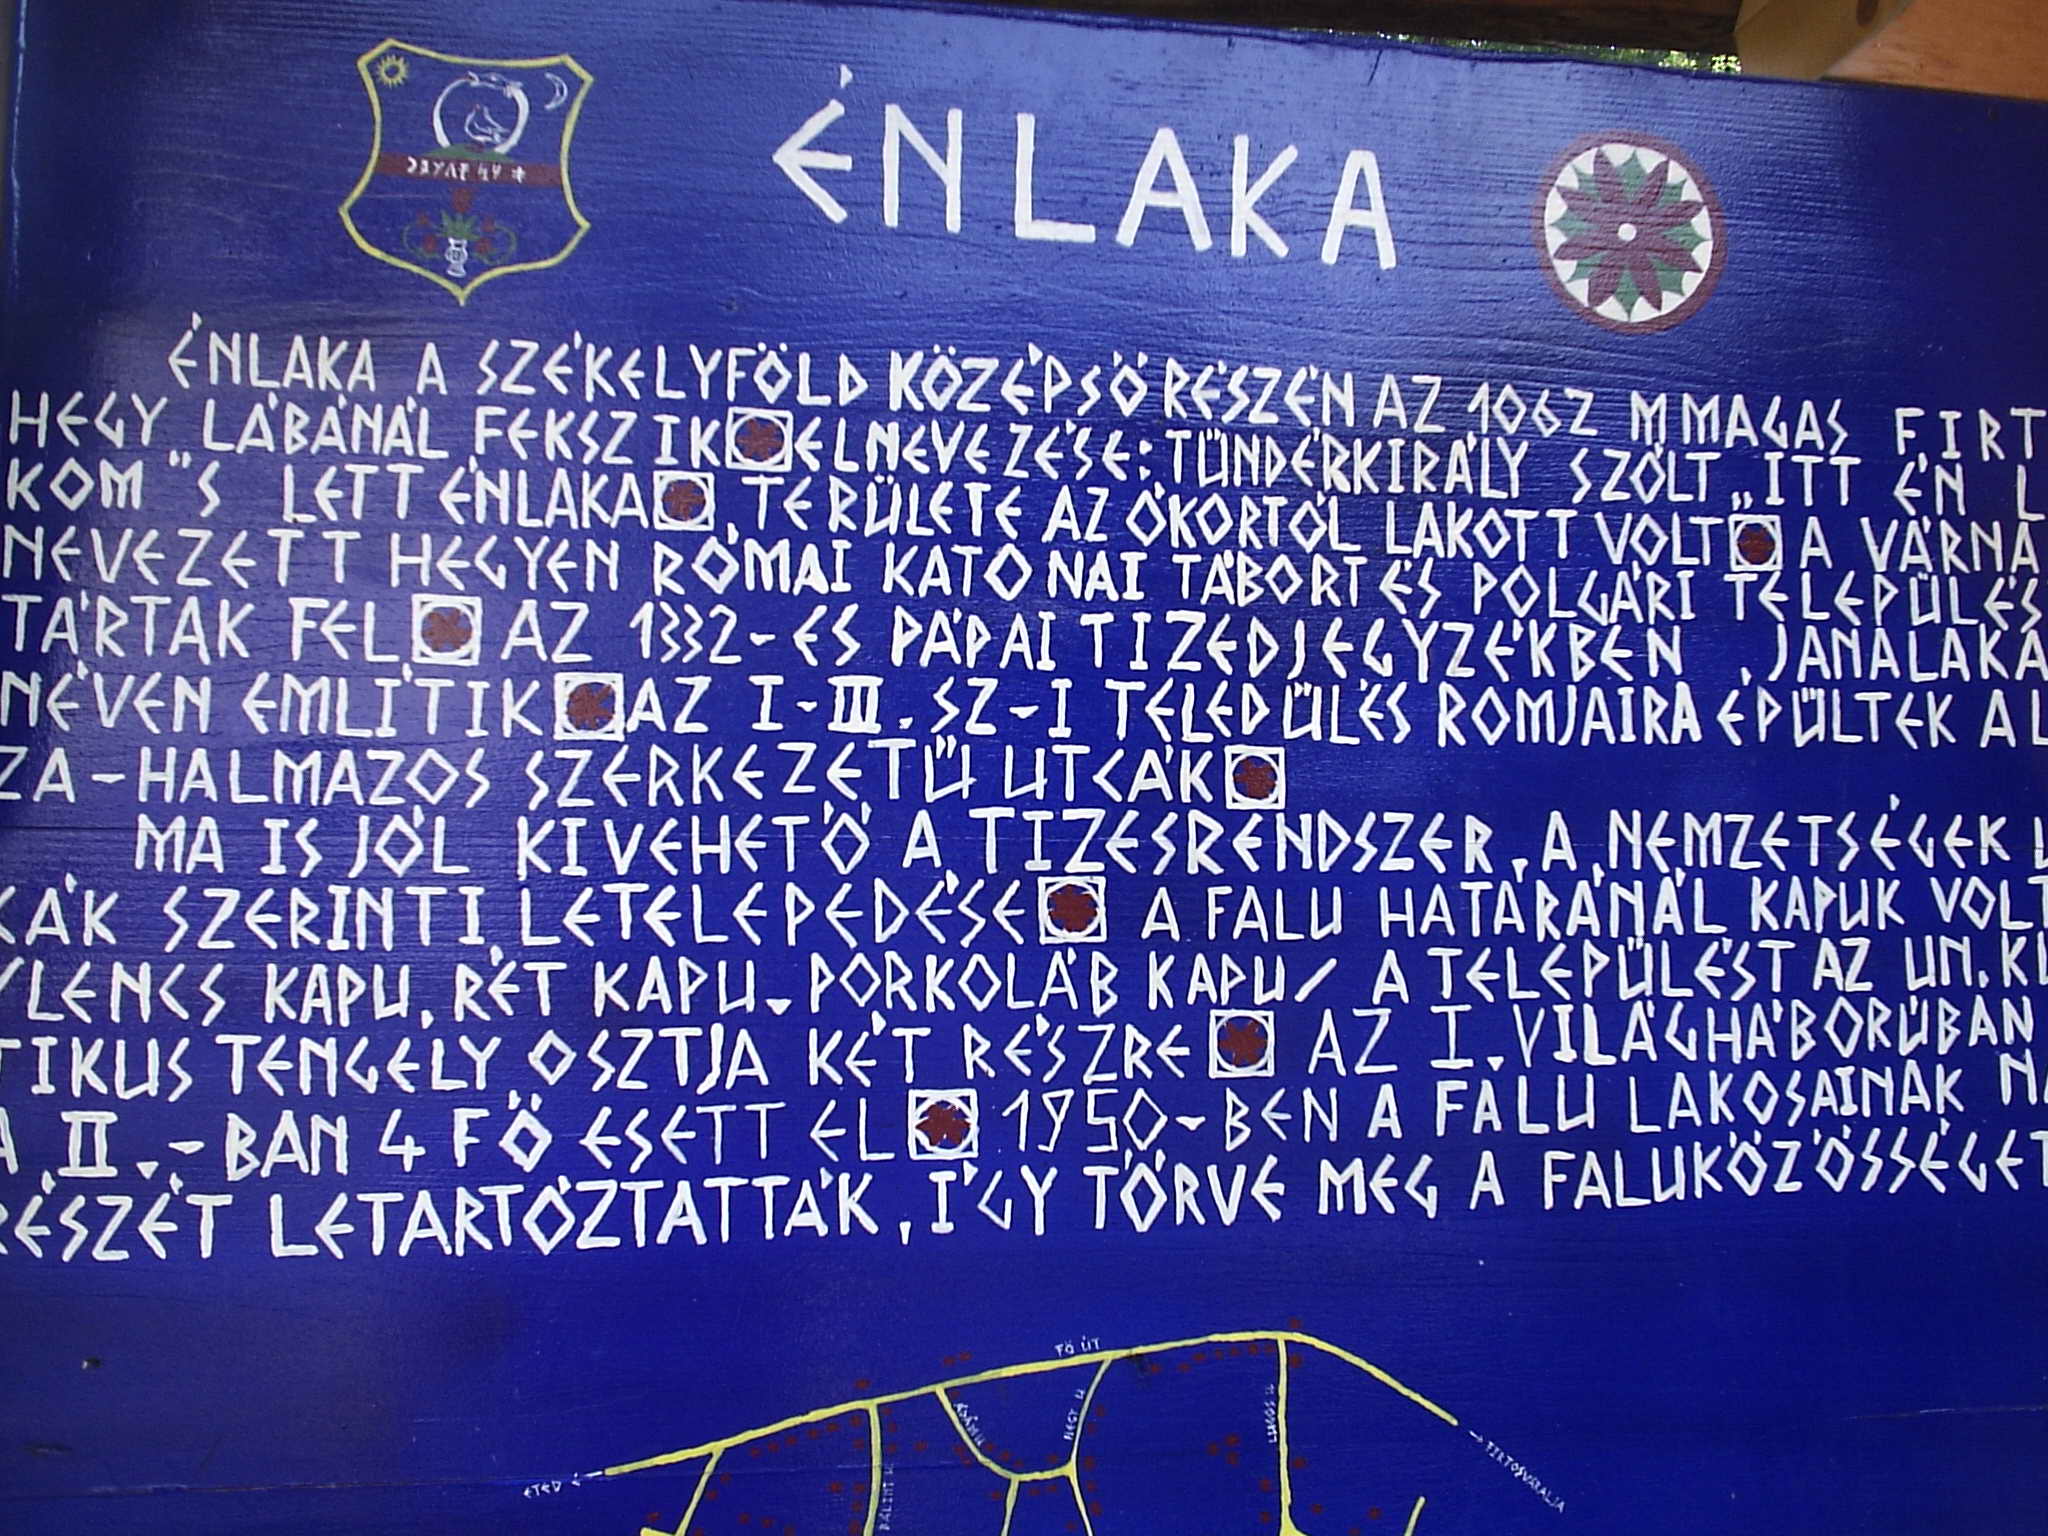 ÉNLAKA
ÉNLAKA A SZÉKELYFÖLD KÖZÉPSŐ RÉSZÉN AZ 1062 M MAGAS FIRT
HEGY LÁBÁNÁL FEKSZIK ELNEVEZÉSE: TÜNDÉRKIRÁLY SZÓLT „ITT ÉN L
KOM "S LETT ÉNLAKA , TERÜLETE AZ ÓKORTÓL LAKOTT VOLT A VÁRNA
NEVEZETT HEGYEN RÓMAI KATONAI TÁBORT ÉS POLGÁRI TELEPÜLÉS
TÁRTAK FEL AZ 1332-ES PÁPAI TIZEDJEGYZÉKBEN , JANALAKA
NÉVEN EMLÍTIK AZ I-III. SZ-I TELEPÜLÉS ROMJAIRA ÉPÜLTEK A L
ZA-HALMAZOS SZERKEZETŰ UTCÁK
MA IS JÓL KIVEHETŐ A TIZESRENDSZER, A NEMZETSÉGEK U
CÁK SZERINTI LETELEPEDÉSE A FALU HATÁRÁNÁL KAPUK VOLT
YLENCS KAPU, RÉT KAPU, PORKOLÁB KAPU/ A TELEPÜLÉST AZ UN. KU
TIKUS TENGELY OSZTJA KÉT RÉSZRE AZ I. VILÁGHÁBORÚBAN
A II.-BAN 4 FŐ ESETT EL 1950-BEN A FALU LAKOSAINAK NA
RÉSZÉT LETARTÓZTATTÁK, ÍGY TÖRVE MEG A FALUKÖZÖSSÉGET
FŐ ÚT
HEGY U
ETED
FIRTOSVÁRALJA